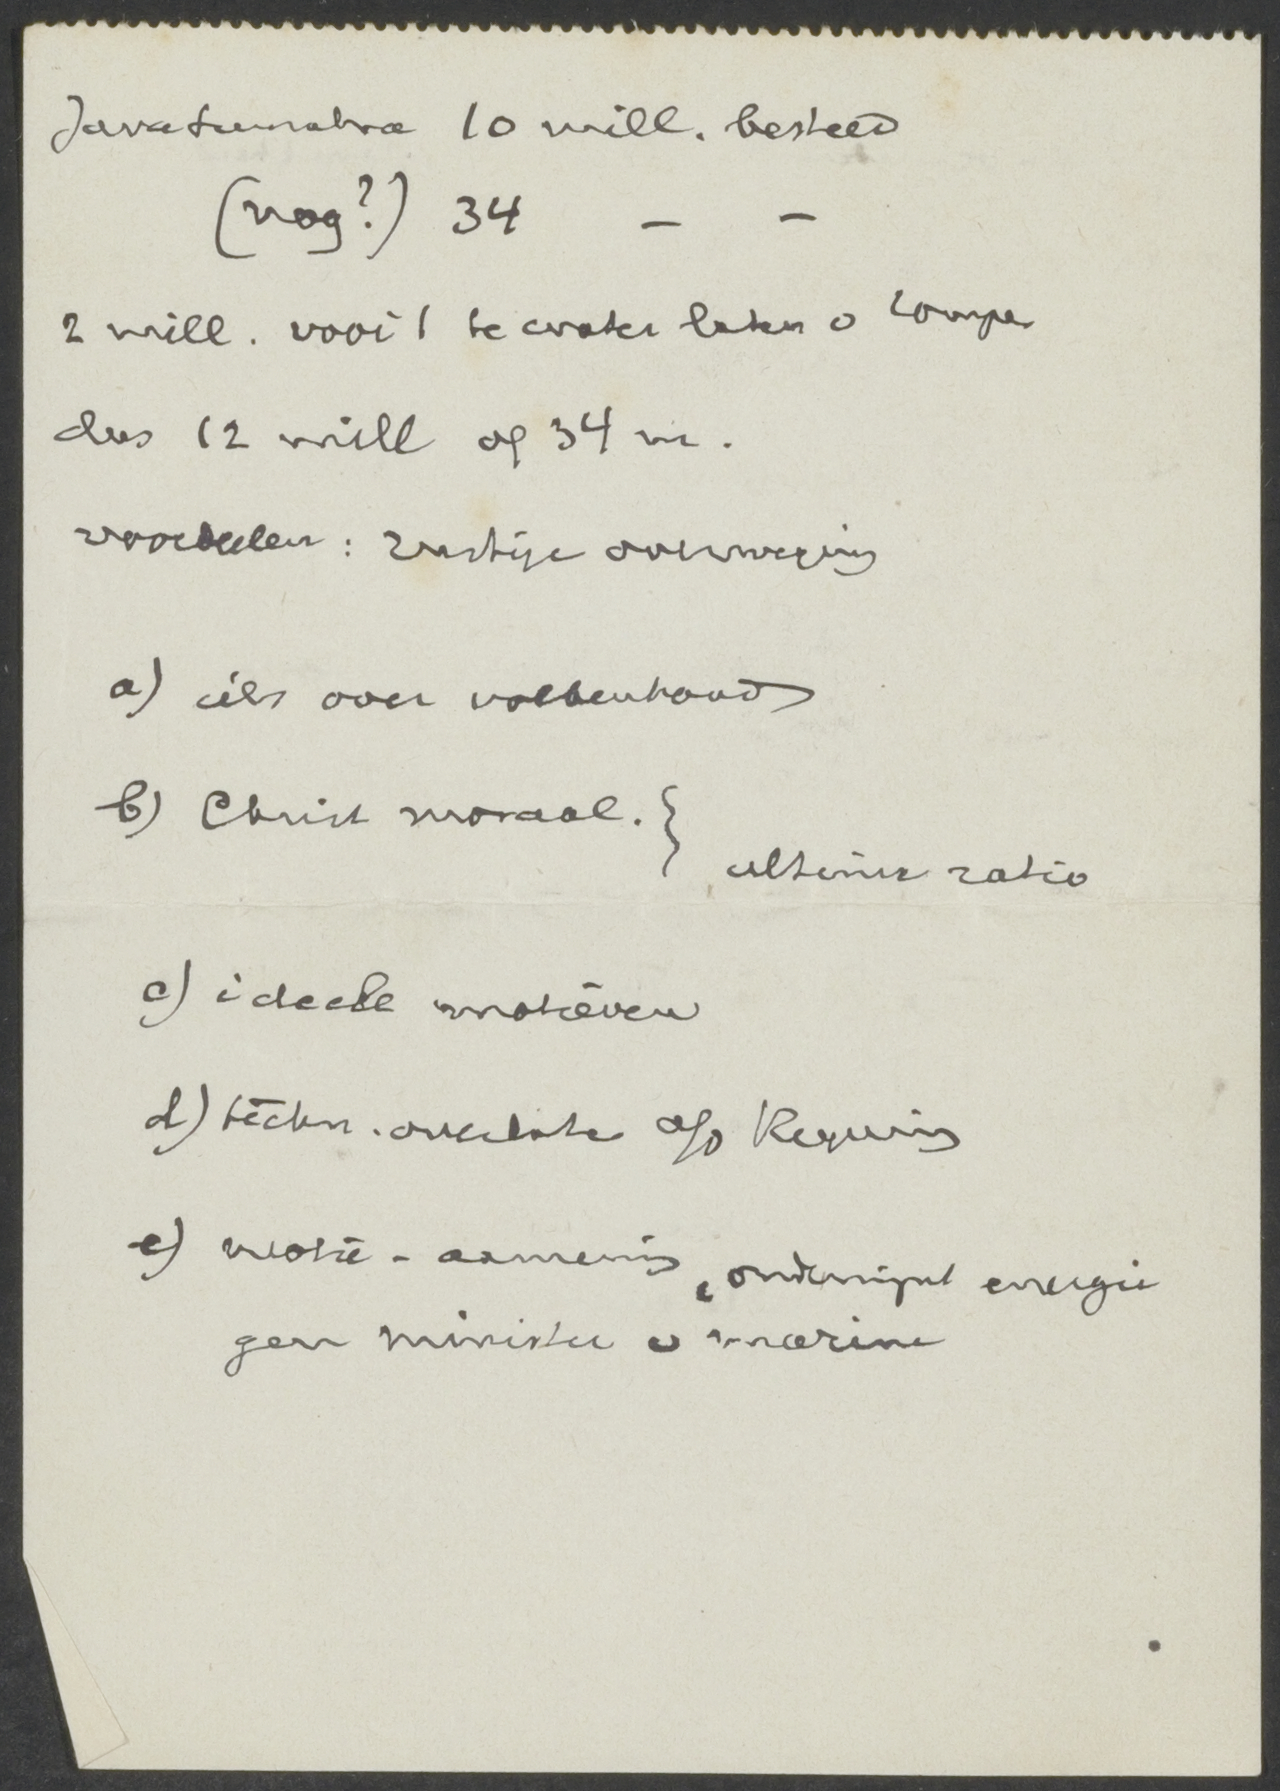 Java Sumatra 10 mill. besteed
(nog?) 34 – –
2 mill. voor 't te water laten v rompen
dus 12 mill op 34 m.
voordelen : rustige overweging
a) iets over vollenhoven
b) Christ moraal. }
ultima ratio
c) ideele motieven
d) techn. overlate a/d Regering
e) motie - aanneming, ondermijnt energie
geen minister v marine